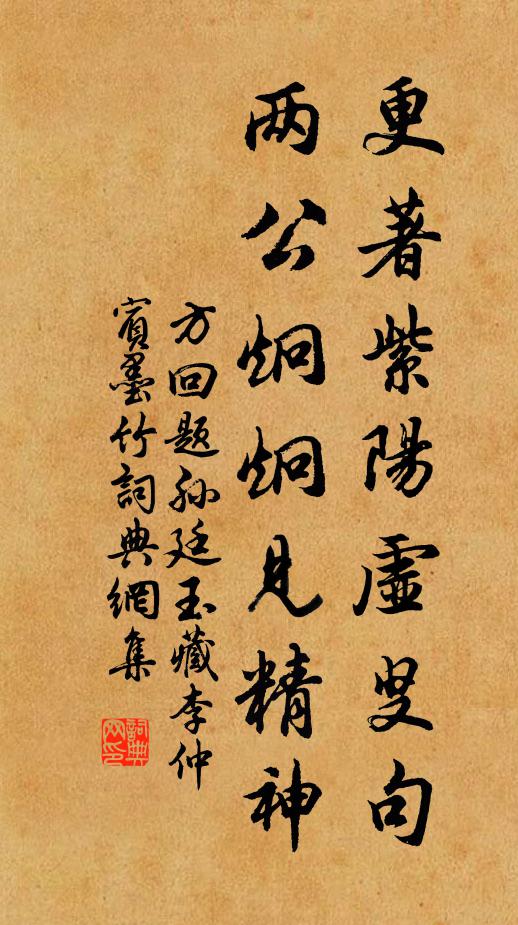 更著紫陽虛叟句
两公炯炯見精神
方回题孙廷玉藏李仲
賓墨竹詞典網集
詞典
网印